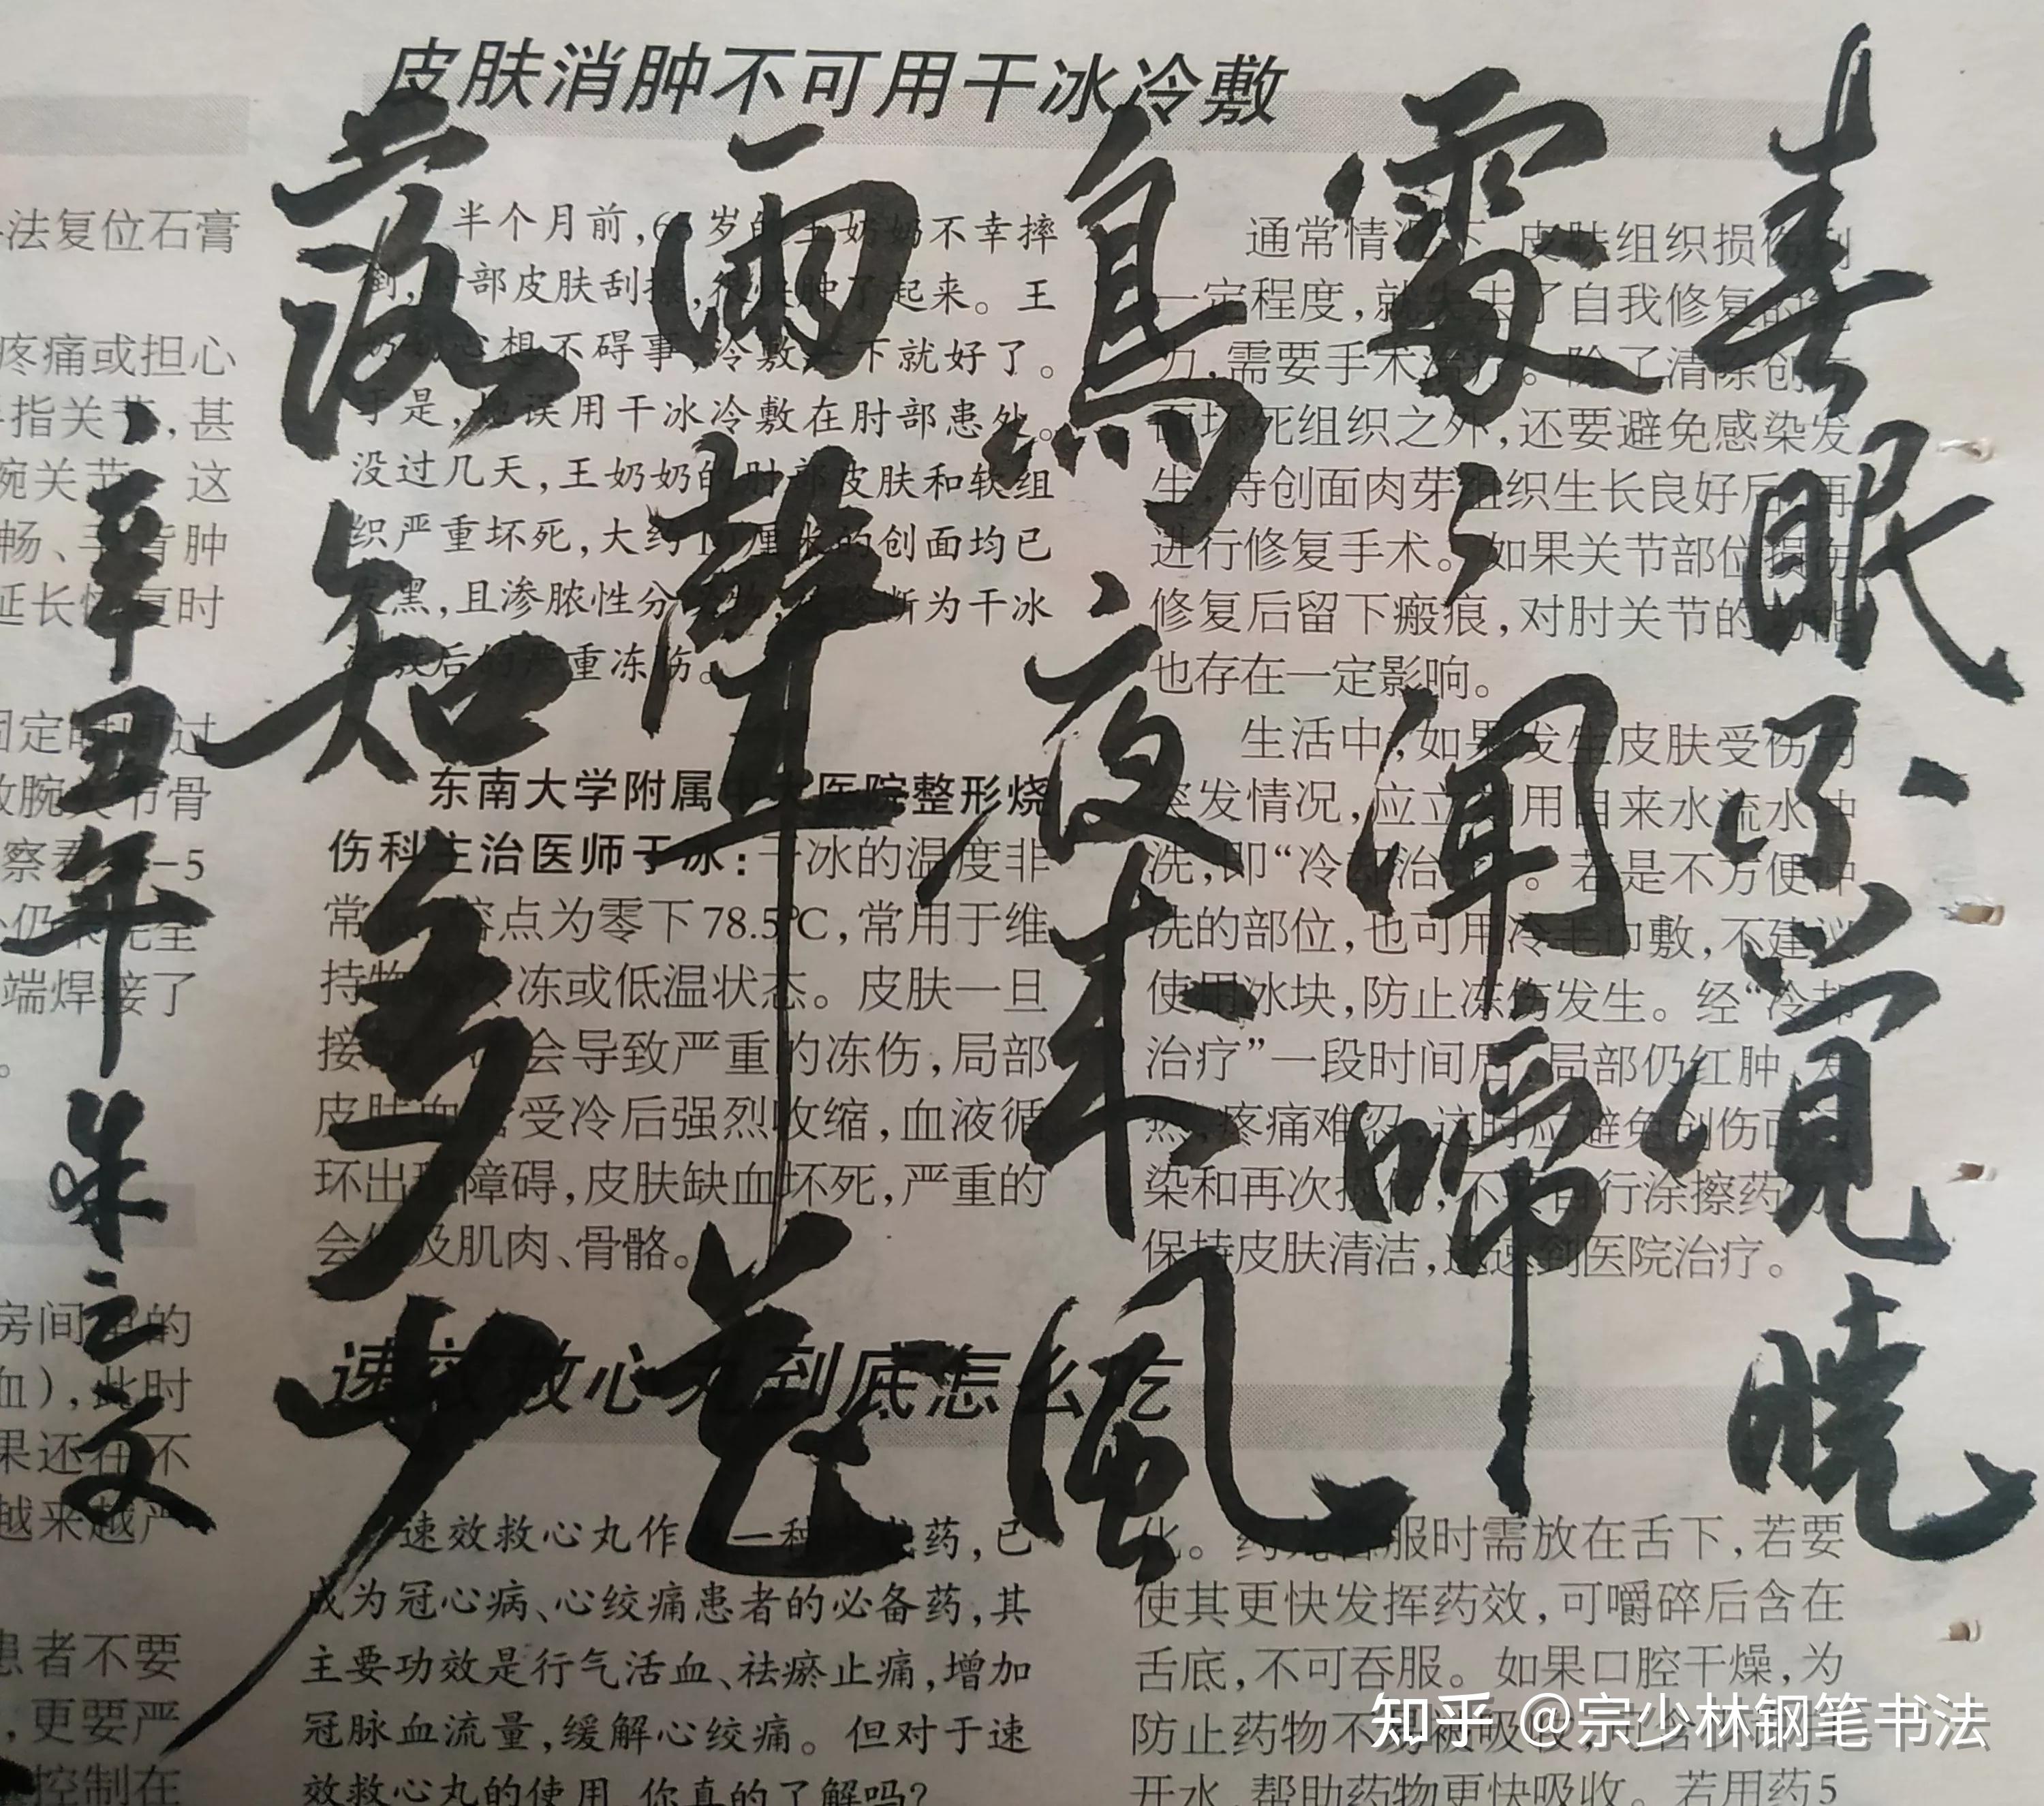 春眠不觉晓
處々闻啼
鳥夜来風
雨聲花
落知多少
辛丑年朱之文
皮肤消肿不可用干冰冷敷
法复位石膏
疼痛或担心
指关节,甚
腕关节、这
畅、手背肿
延长恢复时
固定时间过
节骨
察看
-5
端焊接了
。
房间里的
血),此时
果还在不
越来越严
患者不要
,更要严
控制在
半个月前,65岁的王奶奶不幸摔
倒,肘部皮肤刮擦,很快肿了起来。王
奶奶心想不碍事,冷敷一下就好了。
于是,她误用干冰冷敷在肘部患处。
没过几天,王奶奶的肘部皮肤和软组
织严重坏死,大约10厘米的创面均已
发黑,且渗脓性分泌物,被诊断为干冰
冷敷后的严重冻伤。
东南大学附属中大医院整形烧
伤科主治医师于冰:干冰的温度非
常低,熔点为零下78.5℃,常用于维
持物体冷冻或低温状态。皮肤一旦
接触,会导致严重的冻伤,局部
皮肤血管受冷后强烈收缩,血液循
环出现障碍,皮肤缺血坏死,严重的
会伤及肌肉、骨骼。
通常情况下,皮肤组织损伤到
一定程度,就失去了自我修复的能
力,需要手术治疗。除了清除创
面坏死组织之外,还要避免感染发
生,待创面肉芽组织生长良好后,再
进行修复手术。如果关节部位损伤
修复后留下瘢痕,对肘关节的功能
也存在一定影响。
生活中,如果发生皮肤受伤的
突发情况,应立即用自来水流水冲
洗,即“冷却治疗”。若是不方便冲
洗的部位,也可用冷毛巾敷,不建议
使用冰块,防止冻伤发生。经“冷却
治疗”一段时间后,局部仍红肿、发
热,疼痛难忍,这时应避免创伤面污
染和再次损伤,不要自行涂擦药物,
保持皮肤清洁,迅速到医院治疗。
速效救心丸到底怎么吃
速效救心丸作为一种中成药,已
成为冠心病、心绞痛患者的必备药,其
主要功效是行气活血、祛瘀止痛,增加
冠脉血流量,缓解心绞痛。但对于速
效救心丸的使用,你真的了解吗?
化。药丸含服时需放在舌下,若要
使其更快发挥药效,可嚼碎后含在
舌底,不可吞服。如果口腔干燥,为
防止药物不易被吸收,可含
开水,帮助药物更快吸收。若用药5
知乎 @宗少林钢笔书法